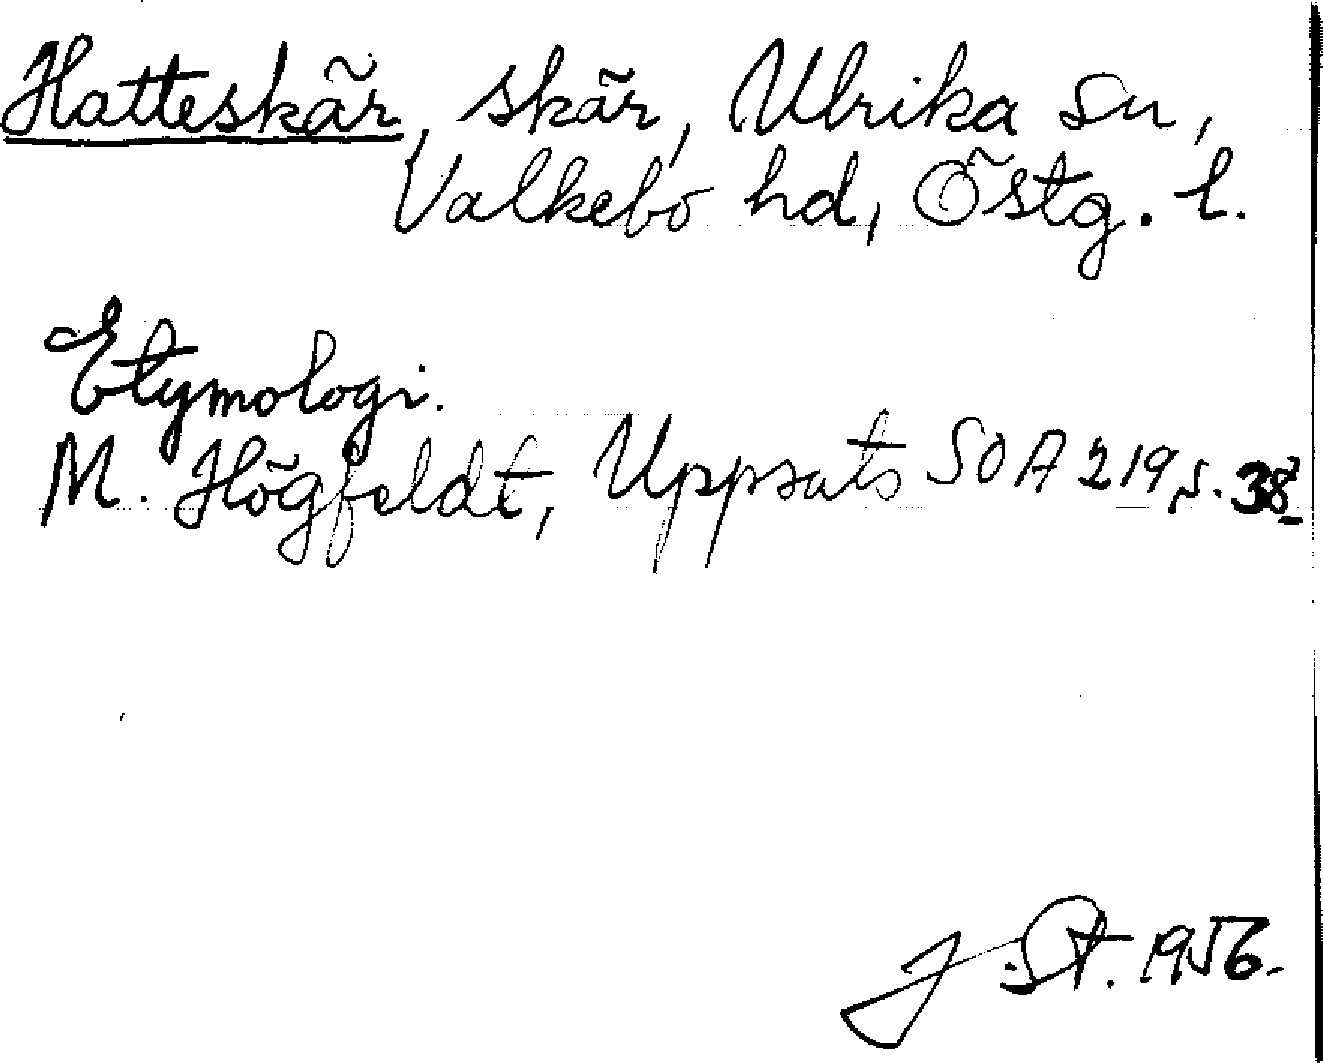 Hatteskär, skär, Ulrika sn,
Valkebo hd, Östg. l.
Etymologi.
M. Högfeldt, Uppsats SOA 219 s. 38
J. St. 1956.